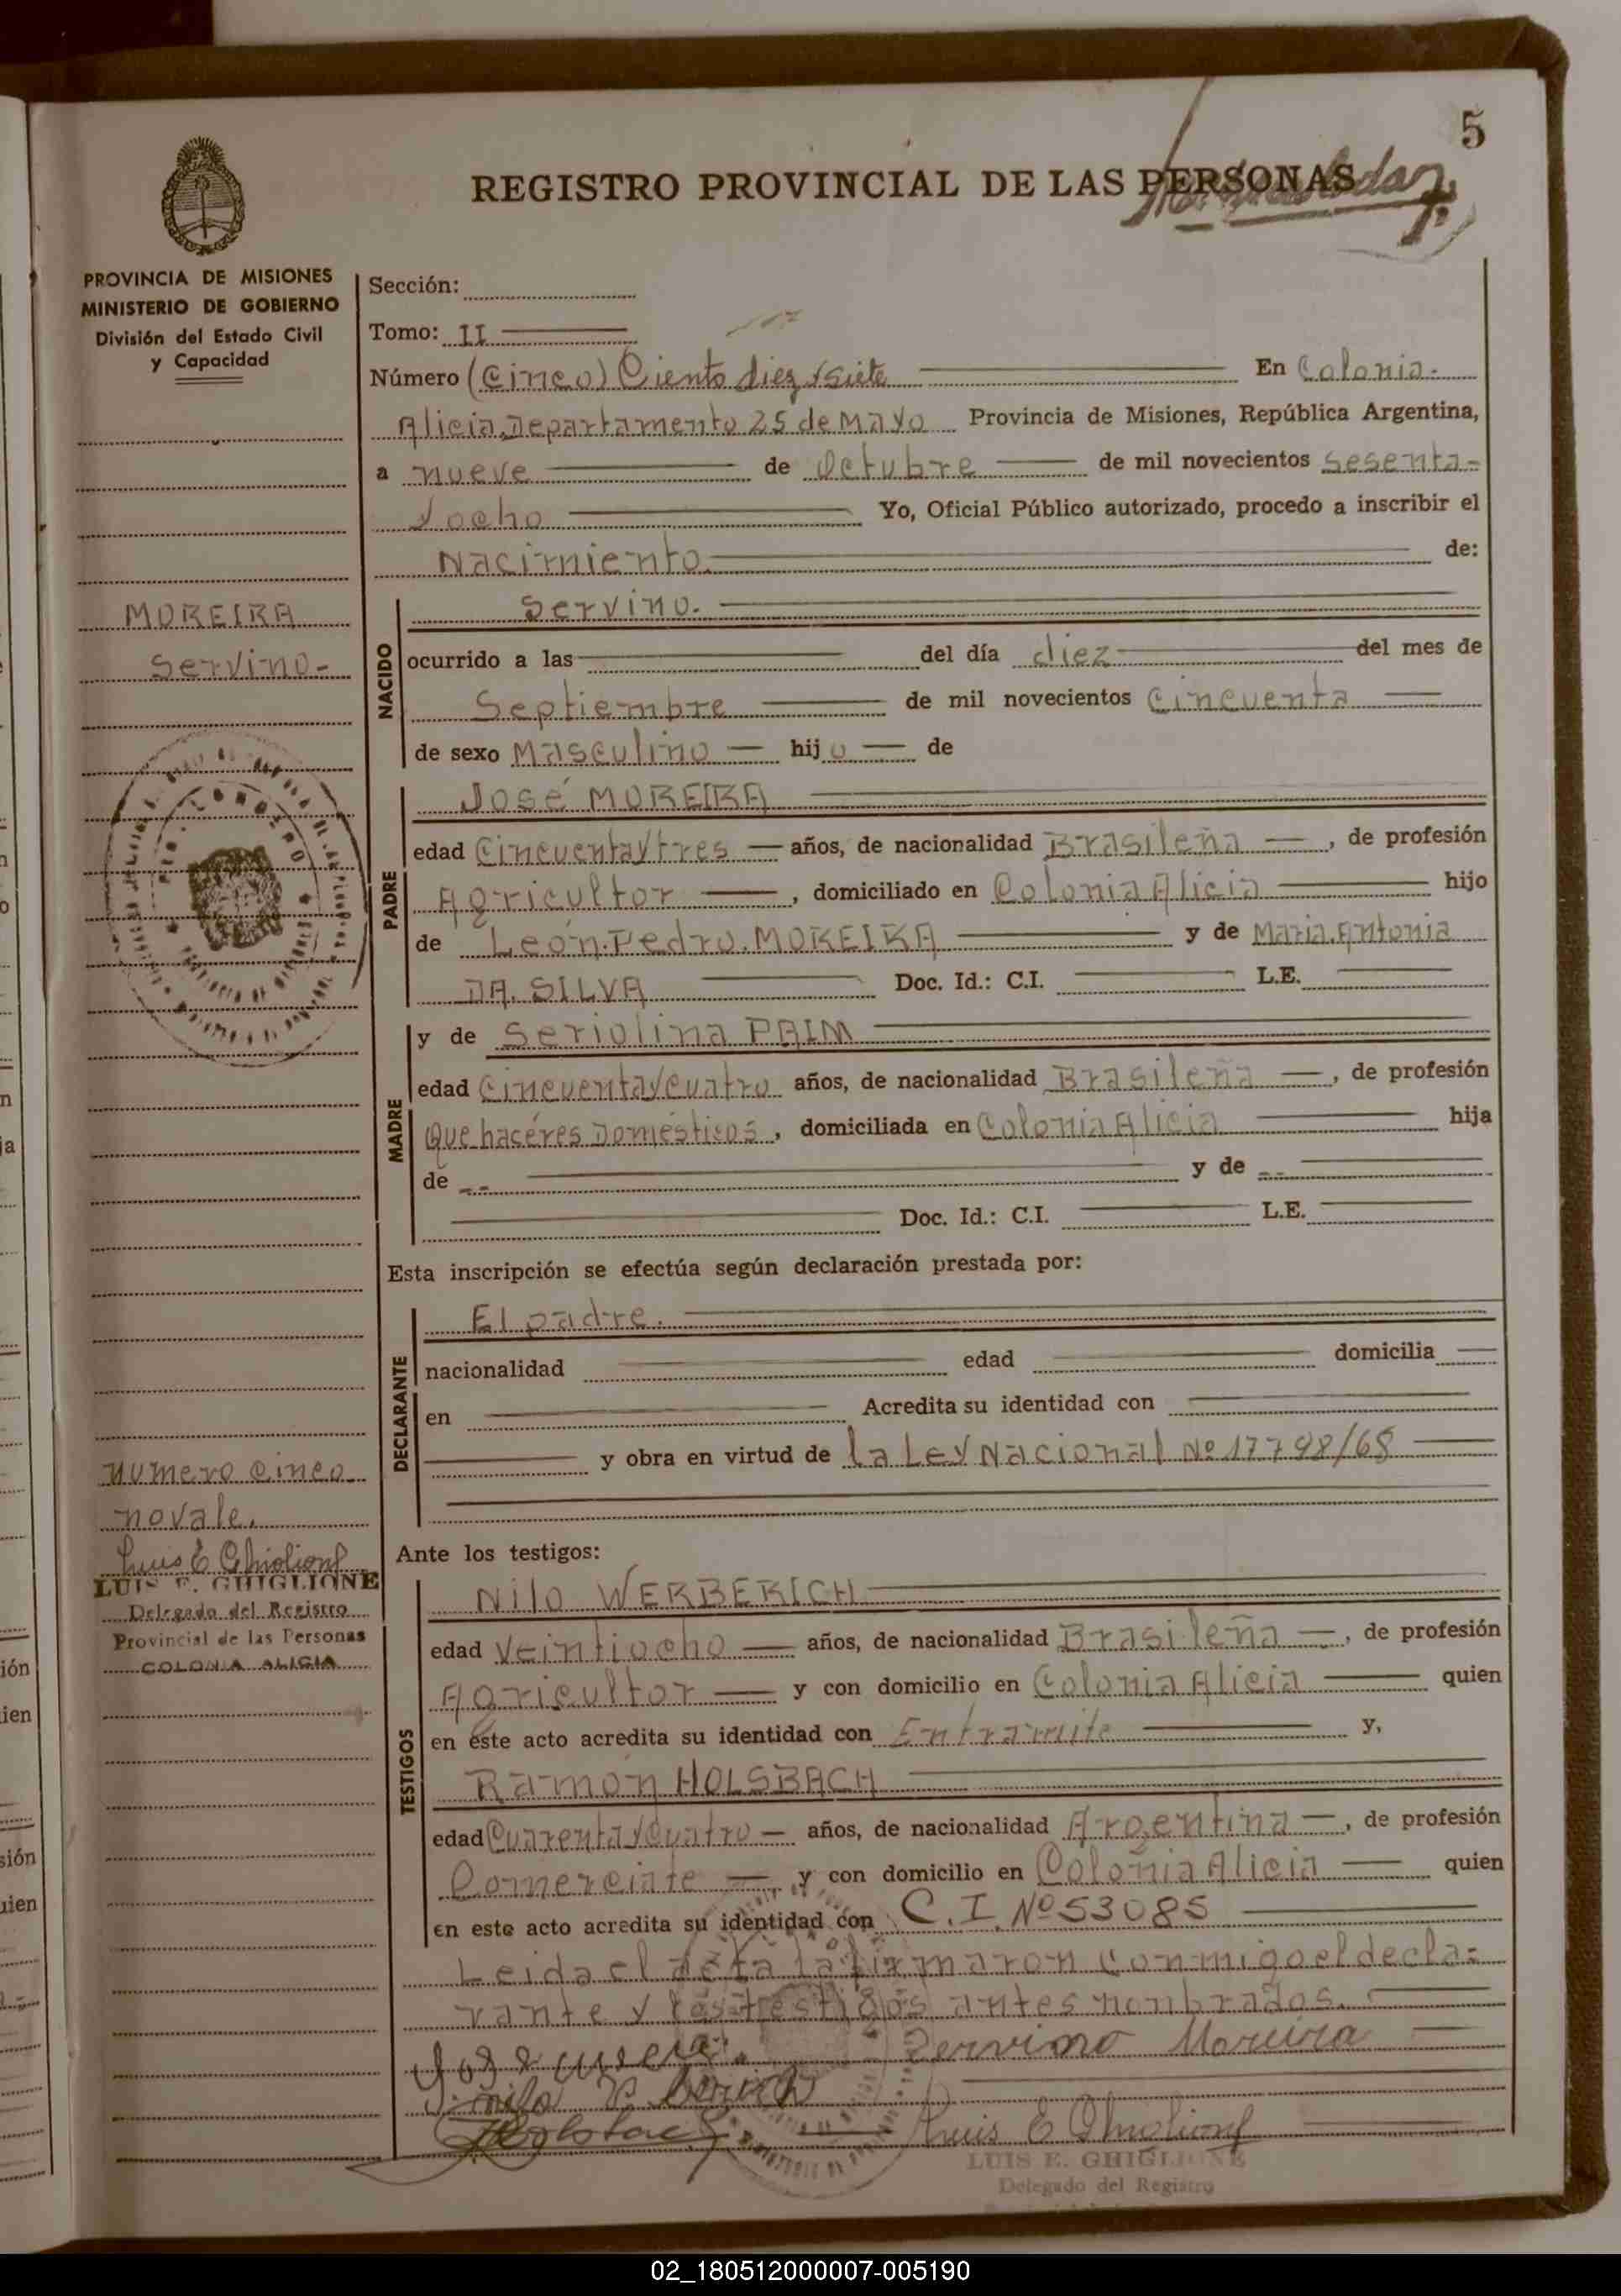 5
REGISTRO PROVINCIAL DE LAS PERSONAS
PROVINCIA DE MISIONES
MINISTERIO DE GOBIERNO
División del Estado Civil
y Capacidad
Sección:
Tomo: II
Número (Cinco) Ciento diez y siete En Colonia-
Alicia, Departamento 25 de Mayo Provincia de Misiones, República Argentina,
a nueve de Octubre de mil novecientos sesenta-
y ocho Yo, Oficial Público autorizado, procedo a inscribir el
Nacimiento. de:
MOREIRA
Servino-
NACIDO
Servino.
ocurrido a las del día diez del mes de
Septiembre de mil novecientos Cincuenta
de sexo Masculino hijo de
PADRE
José MOREIRA
edad Cincuenta y tres años, de nacionalidad Brasileña, de profesión
Agricultor, domiciliado en Colonia Alicia hijo
de León. Pedro. MOREIRA y de Maria. Antonia
DA. SILVA Doc. Id.: C.I. L.E.
MADRE
y de Seriolina PAIM
edad Cincuenta y cuatro años, de nacionalidad Brasileña, de profesión
Que hacéres Domésticos, domiciliada en Colonia Alicia hija
de -- y de --
Doc. Id.: C.I. L.E.
Esta inscripción se efectúa según declaración prestada por:
DECLARANTE
El padre.
nacionalidad edad domicilia
en Acredita su identidad con
y obra en virtud de la Ley Nacional Nº 17798/68
numero cinco
no vale.
Luis E Ghiglione
LUIS E. GHIGLIONE
Delegado del Registro
Provincial de las Personas
COLONIA ALICIA
Ante los testigos:
TESTIGOS
Nilo WERBERICH
edad Veintiocho años, de nacionalidad Brasileña, de profesión
Agricultor y con domicilio en Colonia Alicia quien
en este acto acredita su identidad con En tramite y,
Ramón HOLSBACH
edad Cuarenta y Cuatro años, de nacionalidad Argentina, de profesión
Comerciate y con domicilio en Colonia Alicia quien
en este acto acredita su identidad con C.I. Nº 53085
Leida el acta la firmaron conmigo el decla-
rante y los testigos antes nombrados.
Servino Moreira
Luis E Ghiglione
LUIS E. GHIGLIONE
Delegado del Registro
02_180512000007-005190